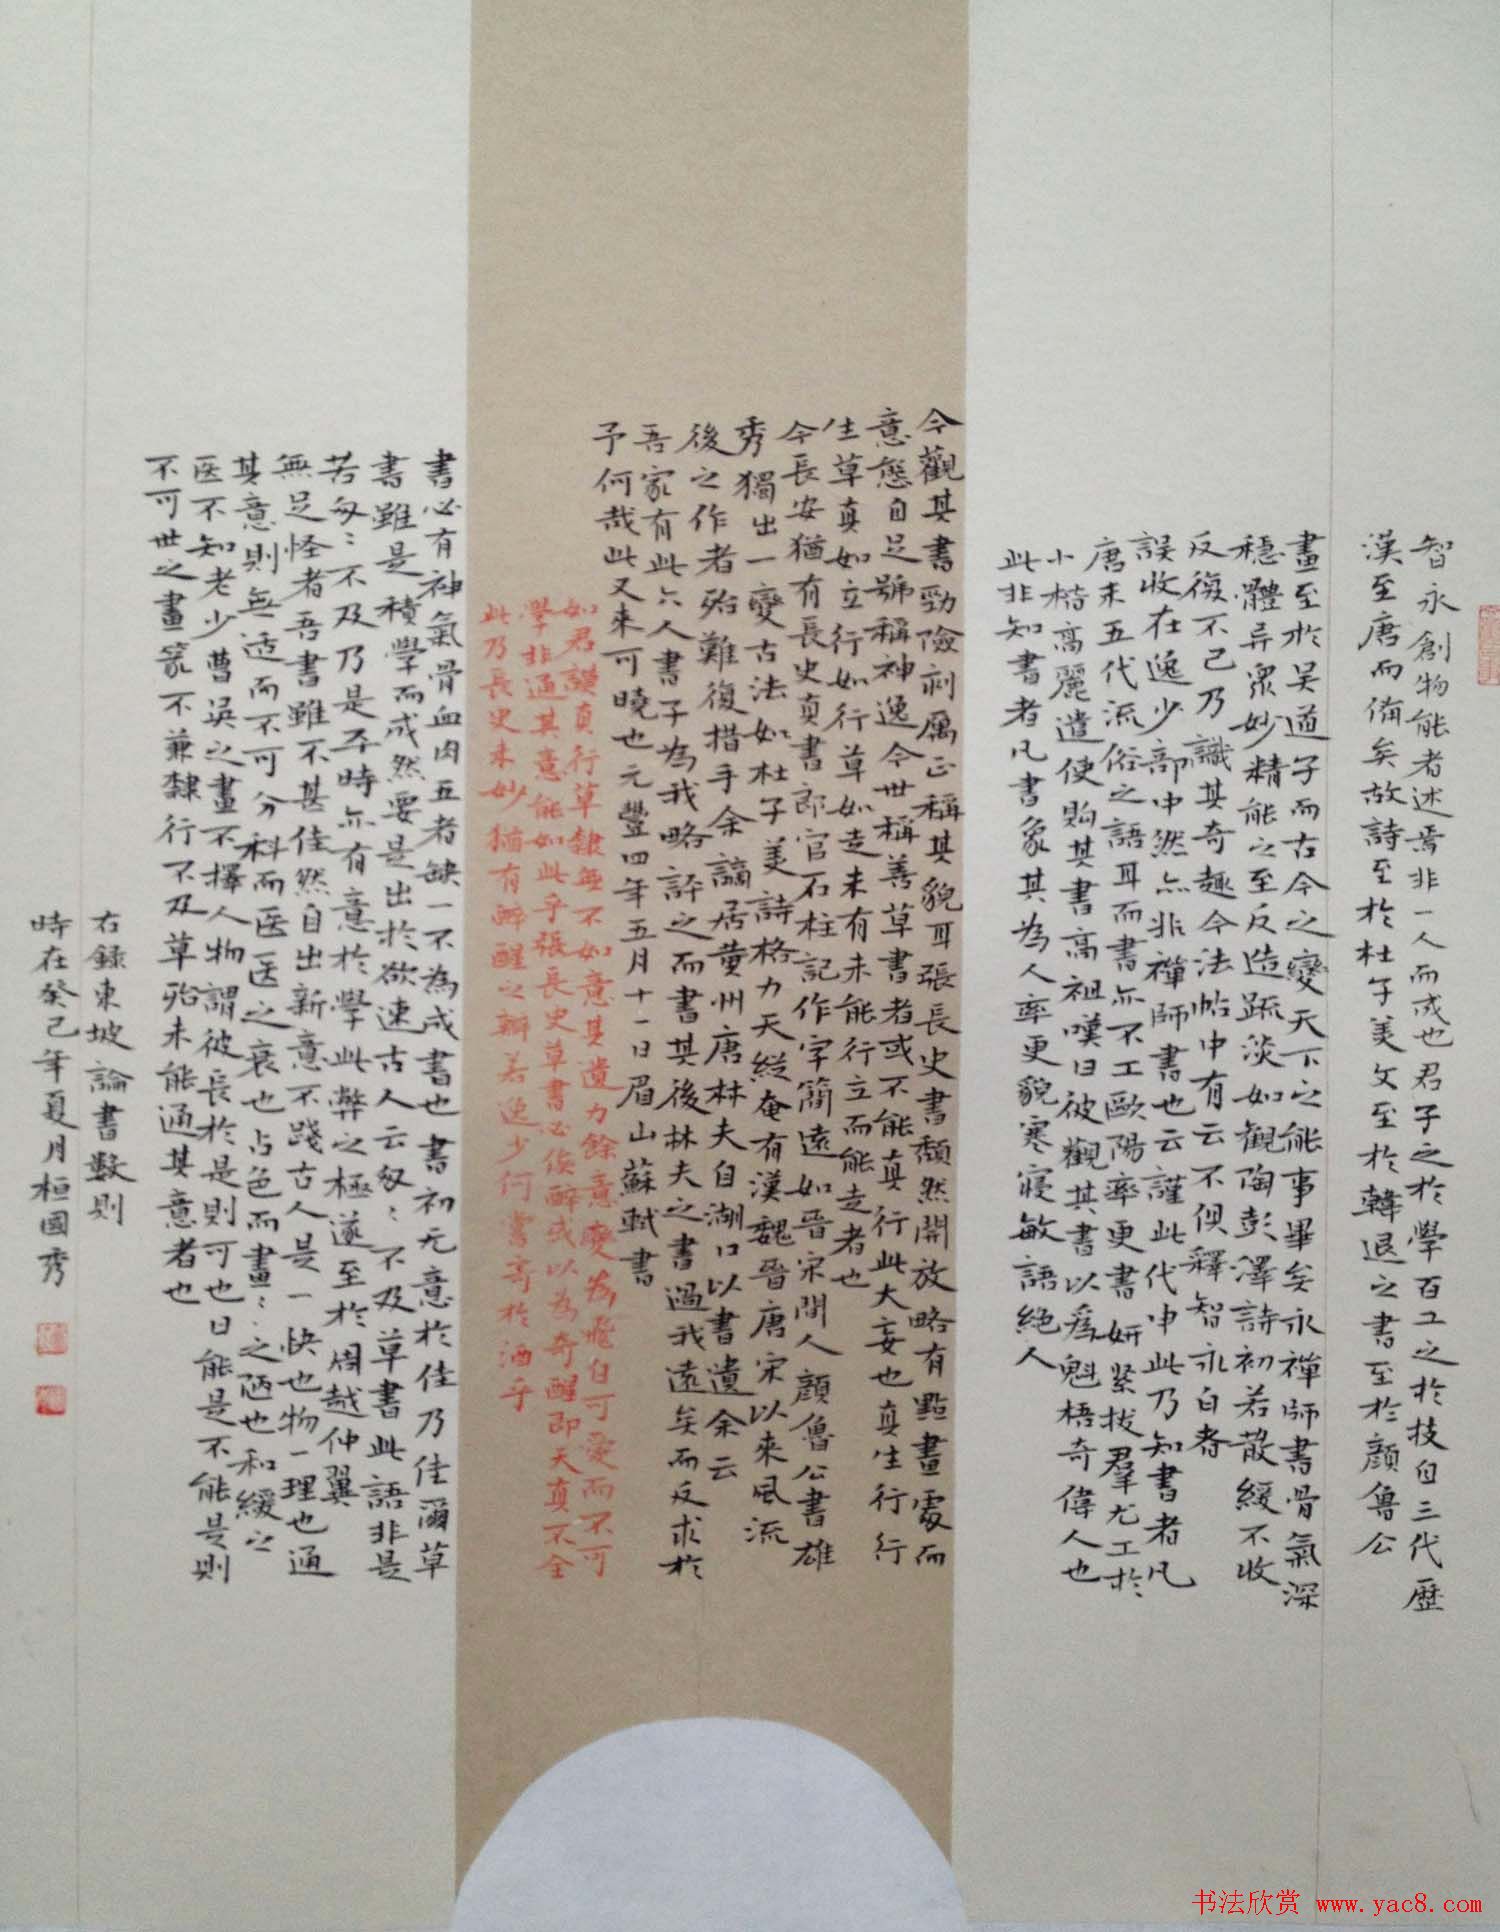 智永創物能者述焉非一人而成也君子之於學百工之於技自三代歷
漢至唐而備矣故詩至於杜子美文至於韓退之書至於顏魯公
畫至於吴道子而古今之變天下之能事畢矣永禪師書骨氣深
穩體异衆妙精能之至反造疏淡如觀陶彭澤詩初若散緩不收
反復不已乃識其奇趣今法帖中有云不俱釋智永白者
誤收在逸少部中然亦非禪師書也云謹此代申此乃知書者凡
唐末五代流俗之語耳而書亦不工歐陽率更書妍緊拔羣尤工於
小楷高麗遣使購其書高祖嘆曰彼觀其書以為魁梧奇偉人也
此非知書者凡書象其為人率更貌寒寢敏語絶人
今觀其書勁險刻厲正稱其貌耳張長史書頹然開放略有點畫處而
意態自足號稱神逸今世稱善草書者或不能真行此大妄也真生行行
生草真如立行如行草如走未有未能行立而能走者也
今長安猶有長史真書郎官石柱記作字簡遠如晉宋間人顏魯公書雄
秀獨出一變古法如杜子美詩格力天縱奄有漢魏晉唐宋以來風流
後之作者殆難復措手余謫居黄州唐林夫自湖口以書遺余云
吾家有此六人書子為我略評之而書其後林夫之書過我遠矣而反求於
予何哉此又未可曉也元豐四年五月十一日眉山蘇軾書
如君謨真行草隸無不如意其遺力餘意變為飛白可愛而不可
學非通其意能如此乎張長史草書必俟醉或以為奇醒即天真不全
此乃長史未妙猶有醉醒之辯若逸少何嘗寄於酒乎
書必有神氣骨血肉五者缺一不為成書也書初无意於佳乃佳爾草
書雖是積學而成然要是出於欲速古人云匆：不及草書此語非是
若匆：不及乃是平時亦有意於學此弊之極遂至於周越仲翼
無足怪者吾書雖不甚佳然自出新意不踐古人是一快也物一理也通
其意則無适而不可分科而医医之衰也占色而畫：之陋也和緩之
医不知老少曹吴之畫不擇人物謂彼長於是則可也曰能是不能是則
不可世之畫篆不兼隸行不及草殆未能通其意者也
右録東坡論書數則
時在癸巳年夏月桓國秀
书法欣赏 www.yac8.com